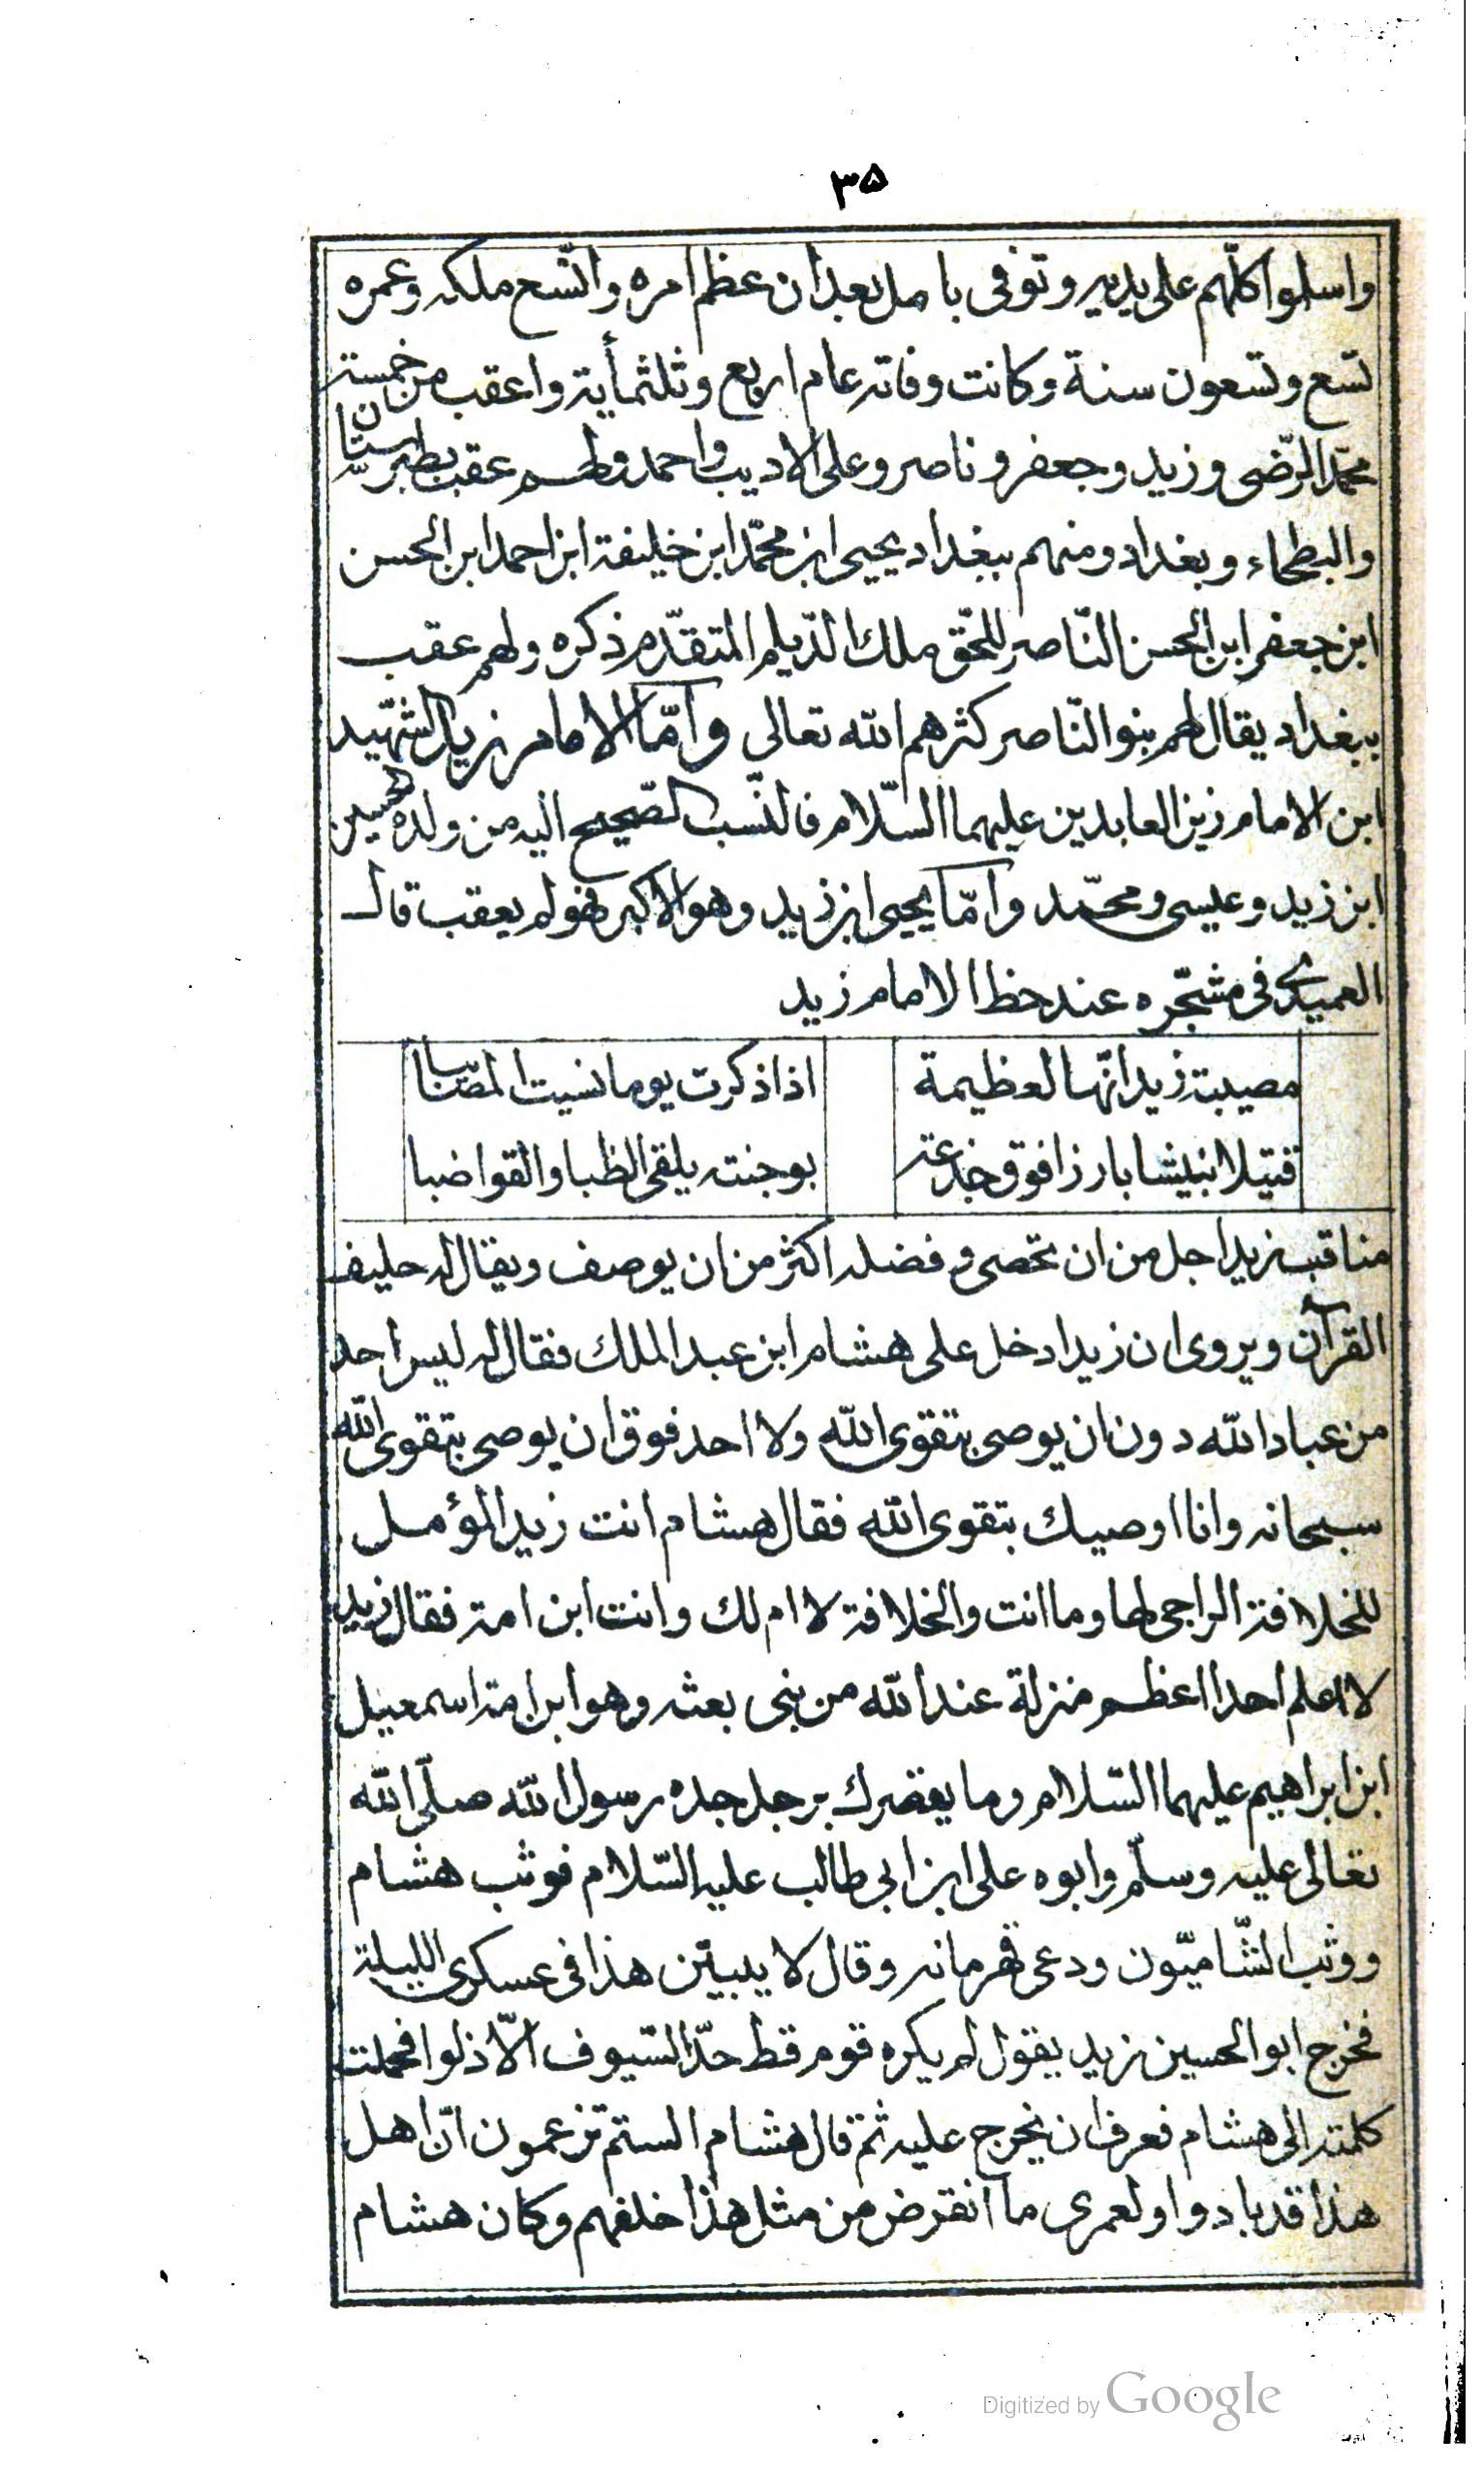 ٣٥
واسلموا كلّهم على يديه وتوفى بامل بعد ان عظم امره واتّسع ملكه وعمره
تسع وتسعون سنة وكانت وفاته عام اربع وثلثمأية واعقب من خمسة
محمّد الرّضى وزيد وجعفر وناصر وعلى الاديب واحمد ولهم عقب بطبرستان
والبطحاء وبغداد ومنهم ببغداد يحيى ابن محمّد ابن خليفة ابن احمد ابن الحسن
ابن جعفر ابن الحسن النّاصر للحّق ملك الدّيلم المتقدّم ذكره ولهم عقب
ببغداد يقال لهم بنو النّاصر كثرهم الله تعالى وامّا الامام زيد الشهّيد
ابن الامام زين العابدين عليهما السّلام فالنّسب الصّحيح اليه من ولده حسين
ابن زيد وعيسى ومحمّد وامّا يحيى ابن زيد وهو الاكبر فهو لم يعقب قال
العميدى فى مشجّره عند خط الامام زيد
مصيبة زيد انّها لعظيمة اذا ذكرت يوما نسيت المصائبا
قتيلا بارزا فوق يلقى الظبا والقواضبا
مناقب زيد اجل من ان تحصى وفضله اكثر من ان يوصف ويقال له حليف
القرآن ويروى ان زيدا دخل على هشام ابن عبد الملك فقال له ليس احد
من عباد الله دون ان يوصى بتقوى الله ولا احد فوق ان يوصى بتقوى الله
سبحانه وانا اوصيك بتقوى الله فقال هشام انت زيد المؤمل
للخلافة الراجى لها وما انت والخلافة لا ام لك وانت ابن امة فقال زيد
لا اعلم احدا اعظم منزلة عند الله من نبى بعثه وهو ابن امة اسمعيل
ابن ابراهيم عليهما السّلام وما يقصرك برجل جده رسول الله صلّى الله
تعالى عليه وسلّم وابوه على ابن ابى طالب عليه السّلام فوثب هشام
ووثب الشّاميّون ودعى قهرمانه وقال لا يبيتن هذا فى عسكرى الليلة
فخرج ابو الحسين زيد يقول لم يكره قوم قط حدّ السّيوف الّا ذلوا فحملت
كلمته الى هشام فعرف ان يخرج عليه ثمّ قال هشام الستم تزعمون انّ اهل
هذا قد بادوا ولعمرى ما انقرض من مثل هذا خلفهم وكان هشام
Digitized by Google